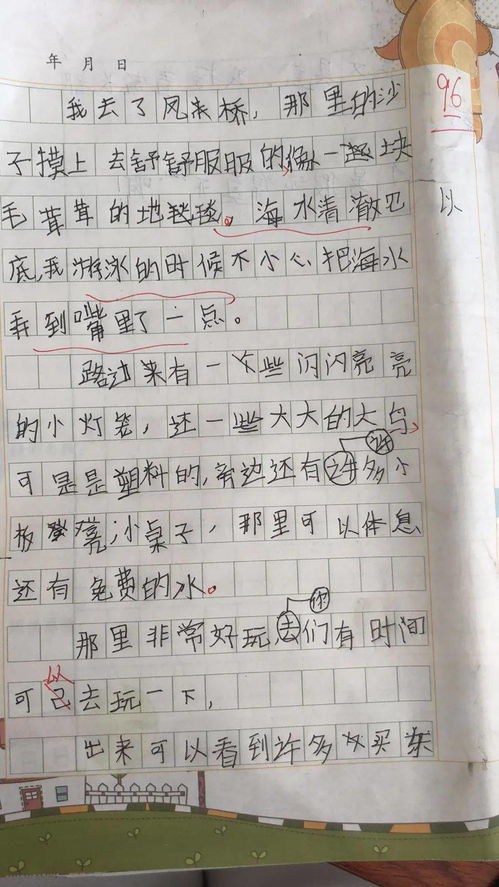 年 月 日
96
我去了风来桥，那里的沙
子摸上去舒舒服服的像一块
毛茸茸的地毯。海水清澈见
以
底，我游泳的时候不小心把海水
弄到嘴里了一点。
路过来有一些闪闪亮亮
的小灯笼，还一些大大的大鸟
许
可是是塑料的，旁边还有许多小
板凳，小桌子，那里可以休息
还有免费的水。
你
那里非常好玩，去们有时间
以
可己去玩一下，
出来可以看到许多买东